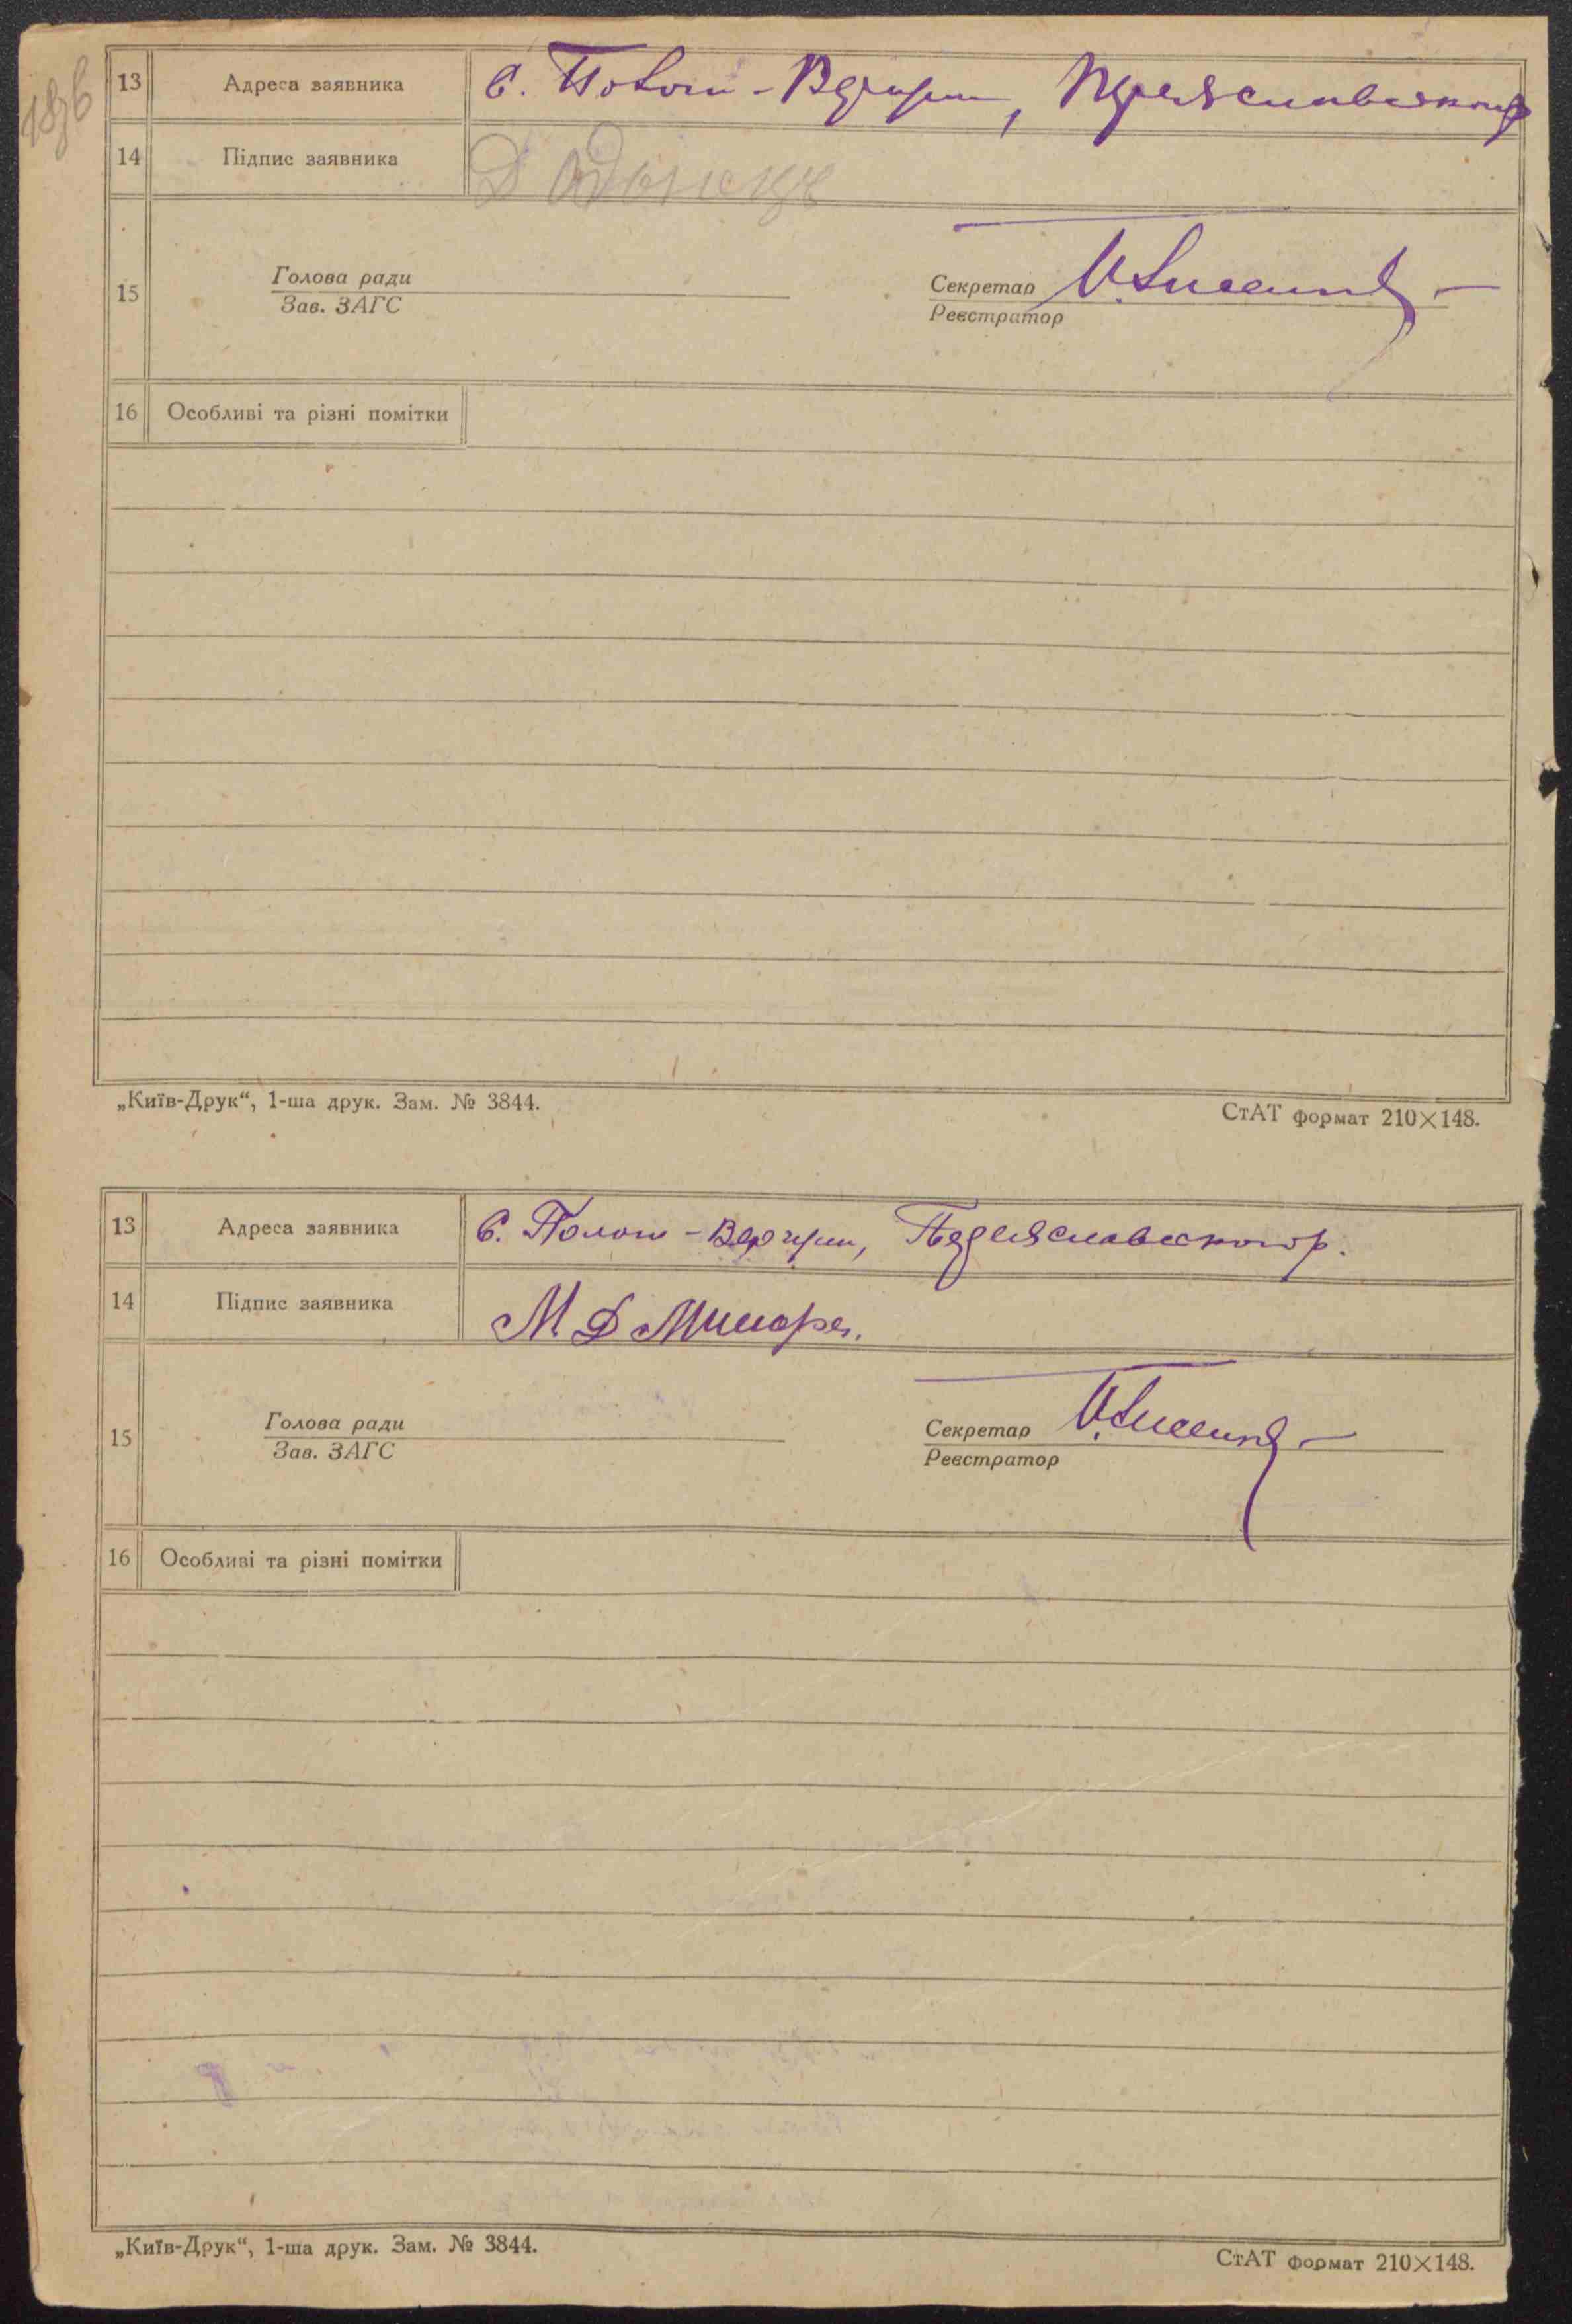 18зв
13 Адреса заявника С. Пологи-Вергуни, Переяславського р
14 Підпис заявника
15 Голова ради Секретар
Зав. ЗАГС Реєстратор
16 Особливі та різні помітки
„Київ-Друк“, 1-ша друк. Зам. № 3844. СтАТ формат 210×148.
13 Адреса заявника С. Пологи-Вергуни, Переяславського р.
14 Підпис заявника М Д
15 Голова ради Секретар
Зав. ЗАГС Реєстратор
16 Особливі та різні помітки
„Київ-Друк“, 1-ша друк. Зам. № 3844. СтАТ формат 210×148.